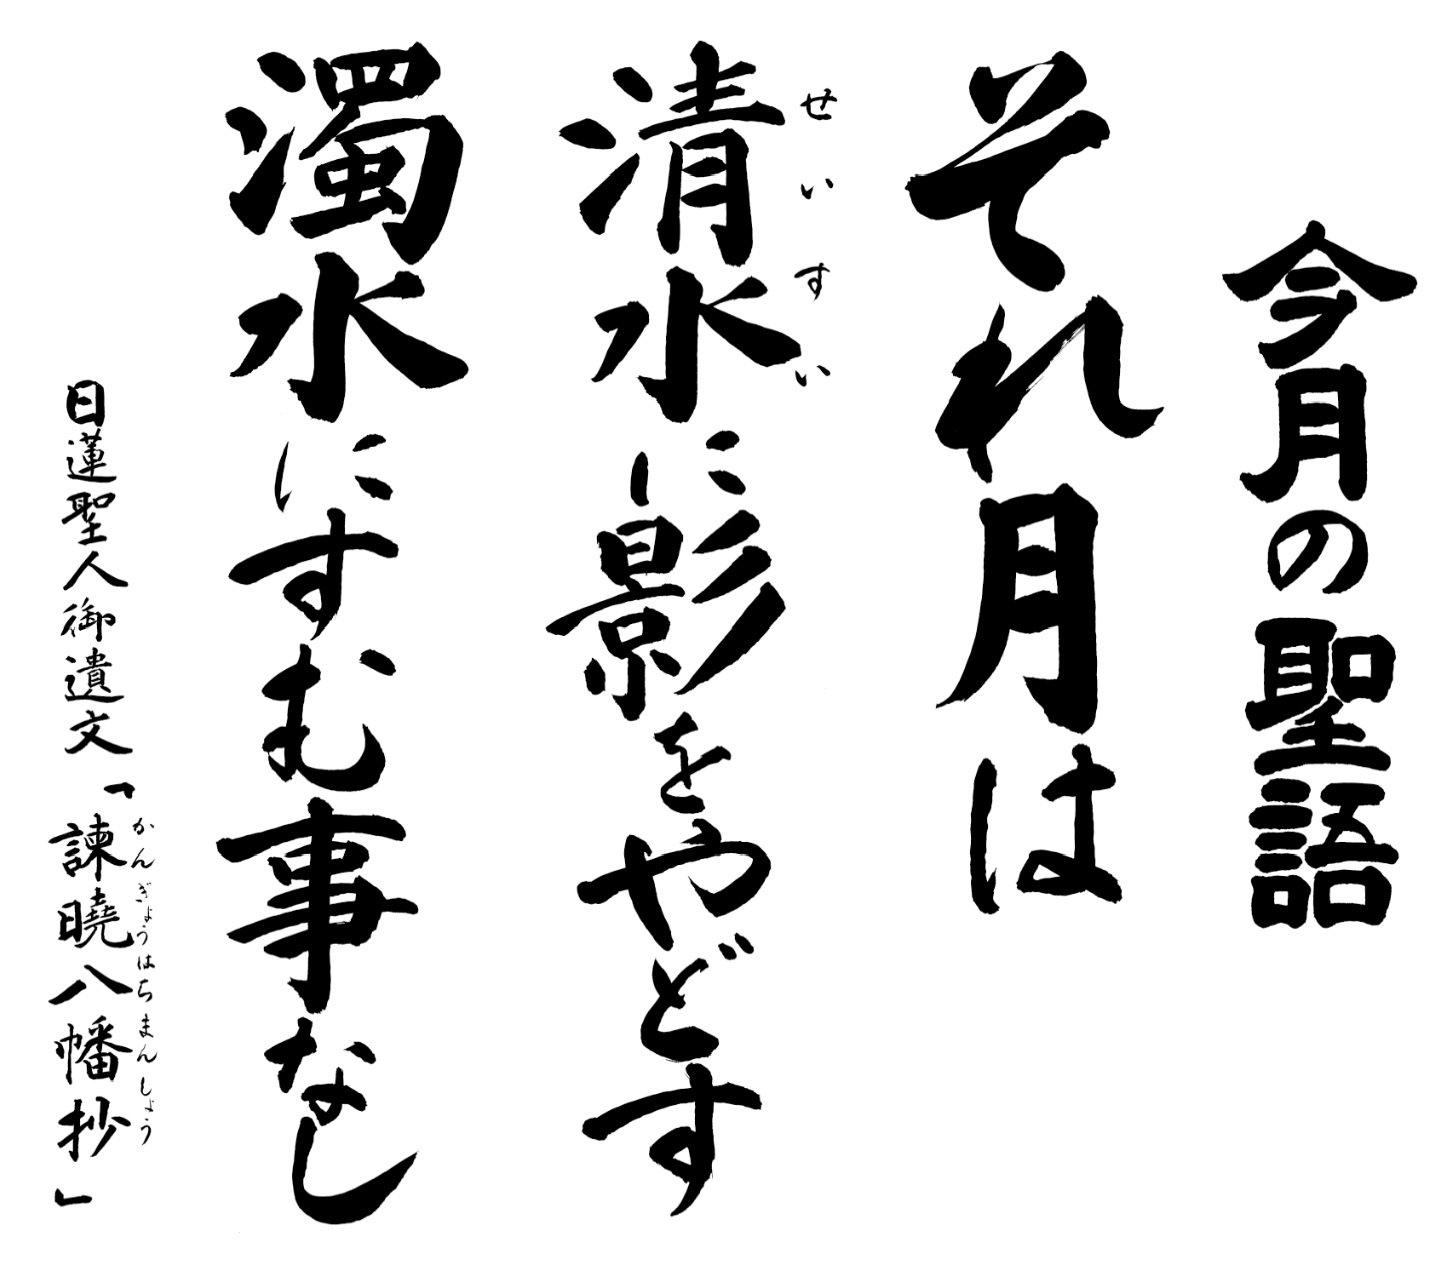 今月の聖語
それ月は
清水に影をやどす
せいすい
濁水にすむ事なし
日蓮聖人御遺文「諫曉八幡抄」
かんぎょうはちまんしょう